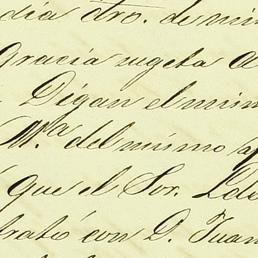 dia dro. de mi
Gracia sugeta a
Digan el mism
M.ª del mismo a
que el Sor.
trató con D. Juan